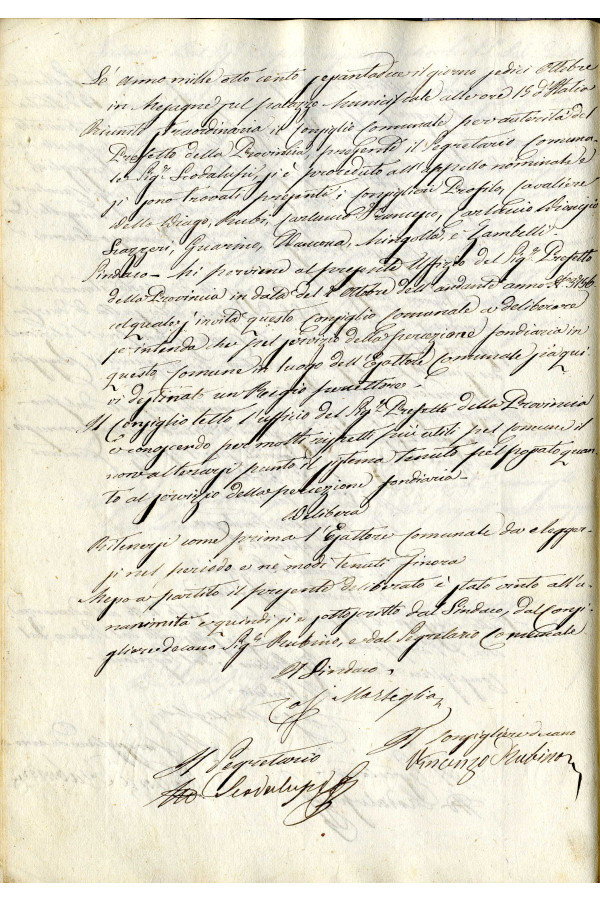 L'anno mille otto cento sessantadue il giorno sedici Ottobre
in Mesagne nel palazzo Municipale alle ore 15 d'Italia
Riunito straordinaria il Consiglio Comunale per autorità del
Prefetto della Provincia, presente il Segretario Comuna-
le Sigr. Scodalupi, si è proceduto all'appello nominale e
si sono trovati presenti i Consiglieri Profilo, Cavaliere
Della Biago, Rubi, Carluccio Francesco, Carluccio Biangio
Scazzeri, Guarino, Mingolla, e Zambelli.
Sindaco — mi perviene al presente Uffizio del Sigr. Prefetto
della Provincia in data del 2 Ottobre dell'andante anno
col quale s'invita questo Consiglio comunale a deliberare
se intenda che pel servizio della percezione fondiaria in
questo comune in luogo dell'Esattore Comunale sia qui-
vi destinat un Regio percettore.
Il Consiglio letto l'ufficio del Sigr. Prefetto della Provincia
e conoscendo per molti rispetti più utile pel comune il
non alterarsi punto il sistema tenuto pel passato quan-
to al servizio della percezione fondiaria —
Delibera
Ritenersi come prima l'Esattore comunale da elegger-
si nel periodo e nè modi tenuti finora
Messo a partito il presente deliberato è stato vinto all'u-
nanimità e quindi si è sottoscritto dal Sindaco, dal Consi-
gliere decano Sigr. Rubino, e dal Segretario Comunale
Il Sindaco
Marseglia
Il Consigliere decano
Vincenzo Rubino
Il Segretario
Scodalupi